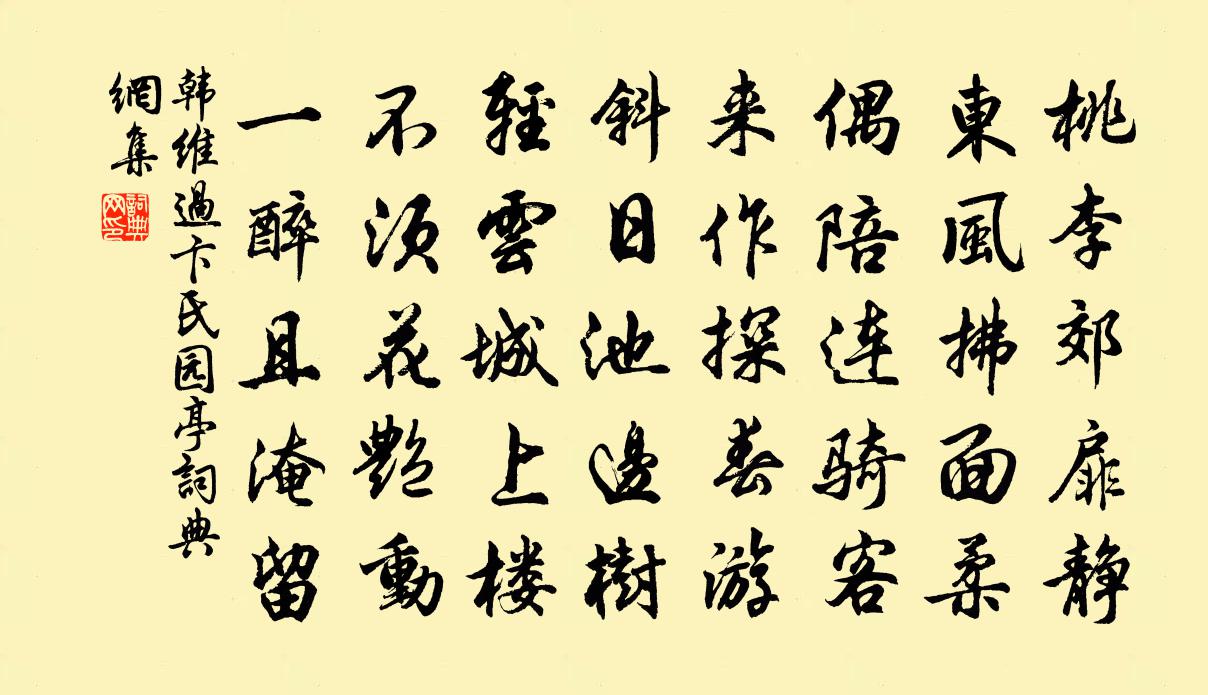 桃李郊扉静
東風拂面柔
偶陪連骑客
来作探春游
斜日池邊樹
輕雲城上楼
不須花艷動
一醉且淹留
韩維過卞氏园亭詞典
網集
詞典
网印